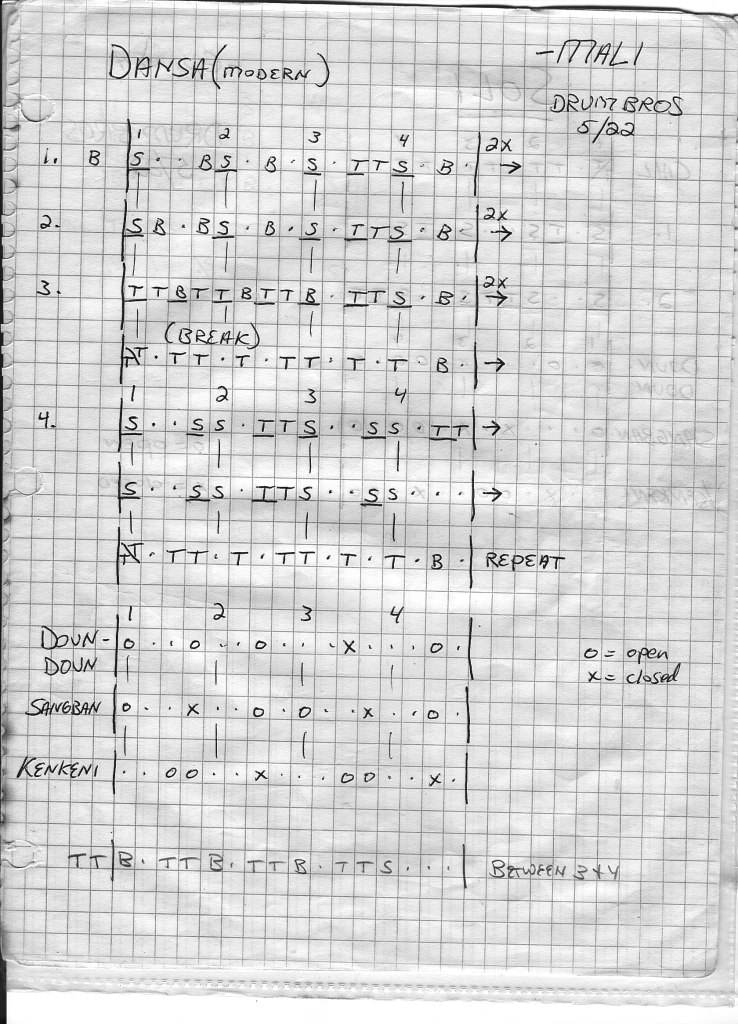 DANSA (MODERN) - MALI
DRUM BROS
5/22
1 2 3 4
1. B |S · · B S · B · S · T T S · B · | 2X →
2. |S B · B S · B · S · T T S · B · | 2X →
3. |T T B T T B T T B · T T S · B · | 2X →
(BREAK)
|T · T T · T · T T · T · T · B · | →
1 2 3 4
4. |S · · S S · T T S · · S S · T T| →
|S · · S S · T T S · · S S · · · | →
|T · T T · T · T T · T · T · B · | REPEAT
1 2 3 4
DOUN-DOUN |o · · o · · o · · · x · · · o · |
o = open
x = closed
SANGBAN |o · · x · · o · o · · x · · o · |
KENKENI | · · o o · · x · · · o o · · x · |
T T |B · T T B · T T B · T T S · · · | BETWEEN 3 + 4